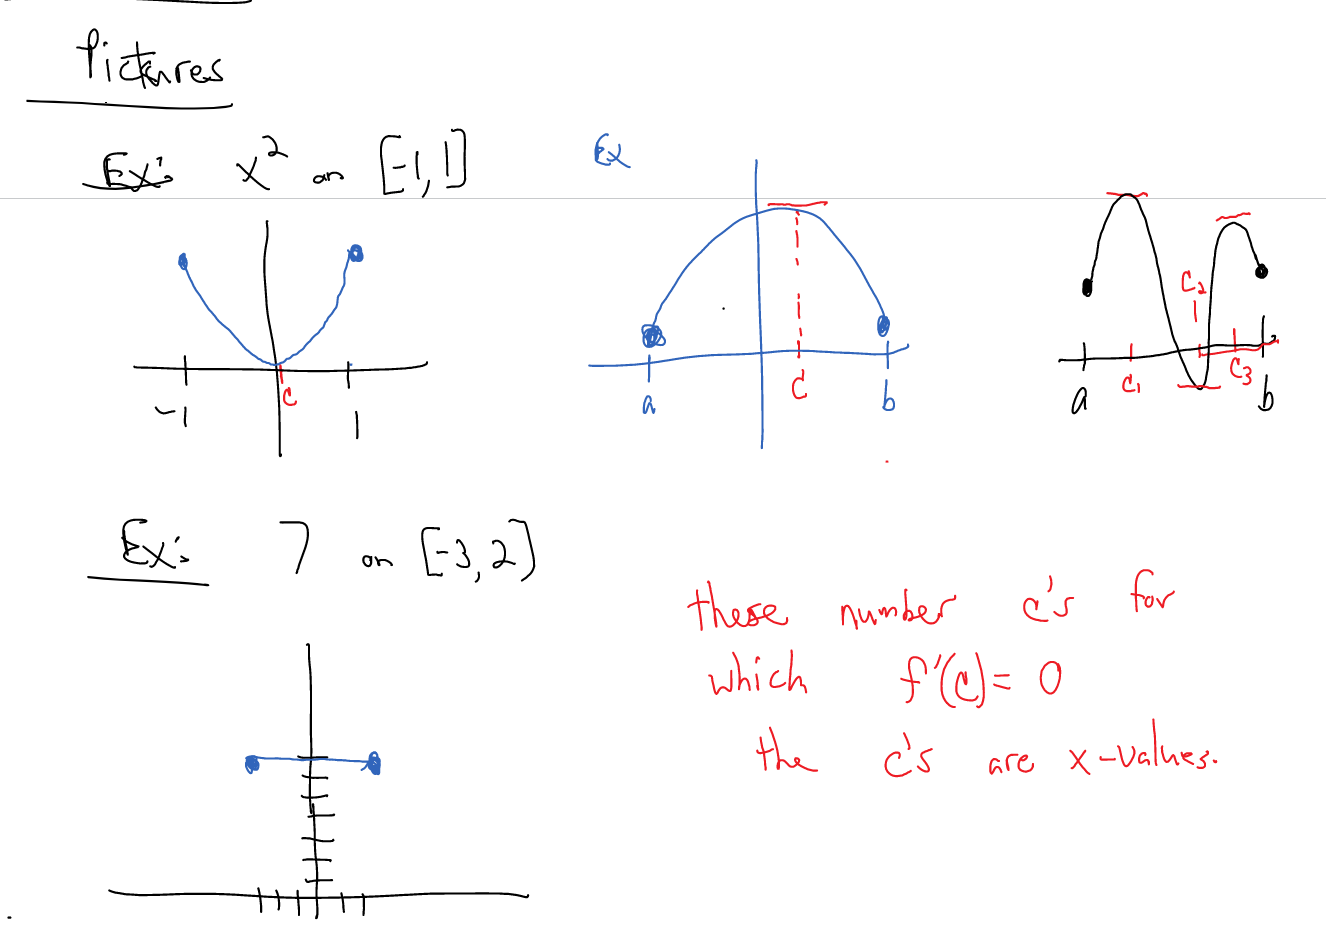 Pictures
Ex: x² on [-1, 1]
Ex
-1
c
1
a
c
b
a
c₁
c₂
c₃
b
Ex: 7 on [-3, 2]
these number c's for
which f'(c) = 0
the c's are x-values.